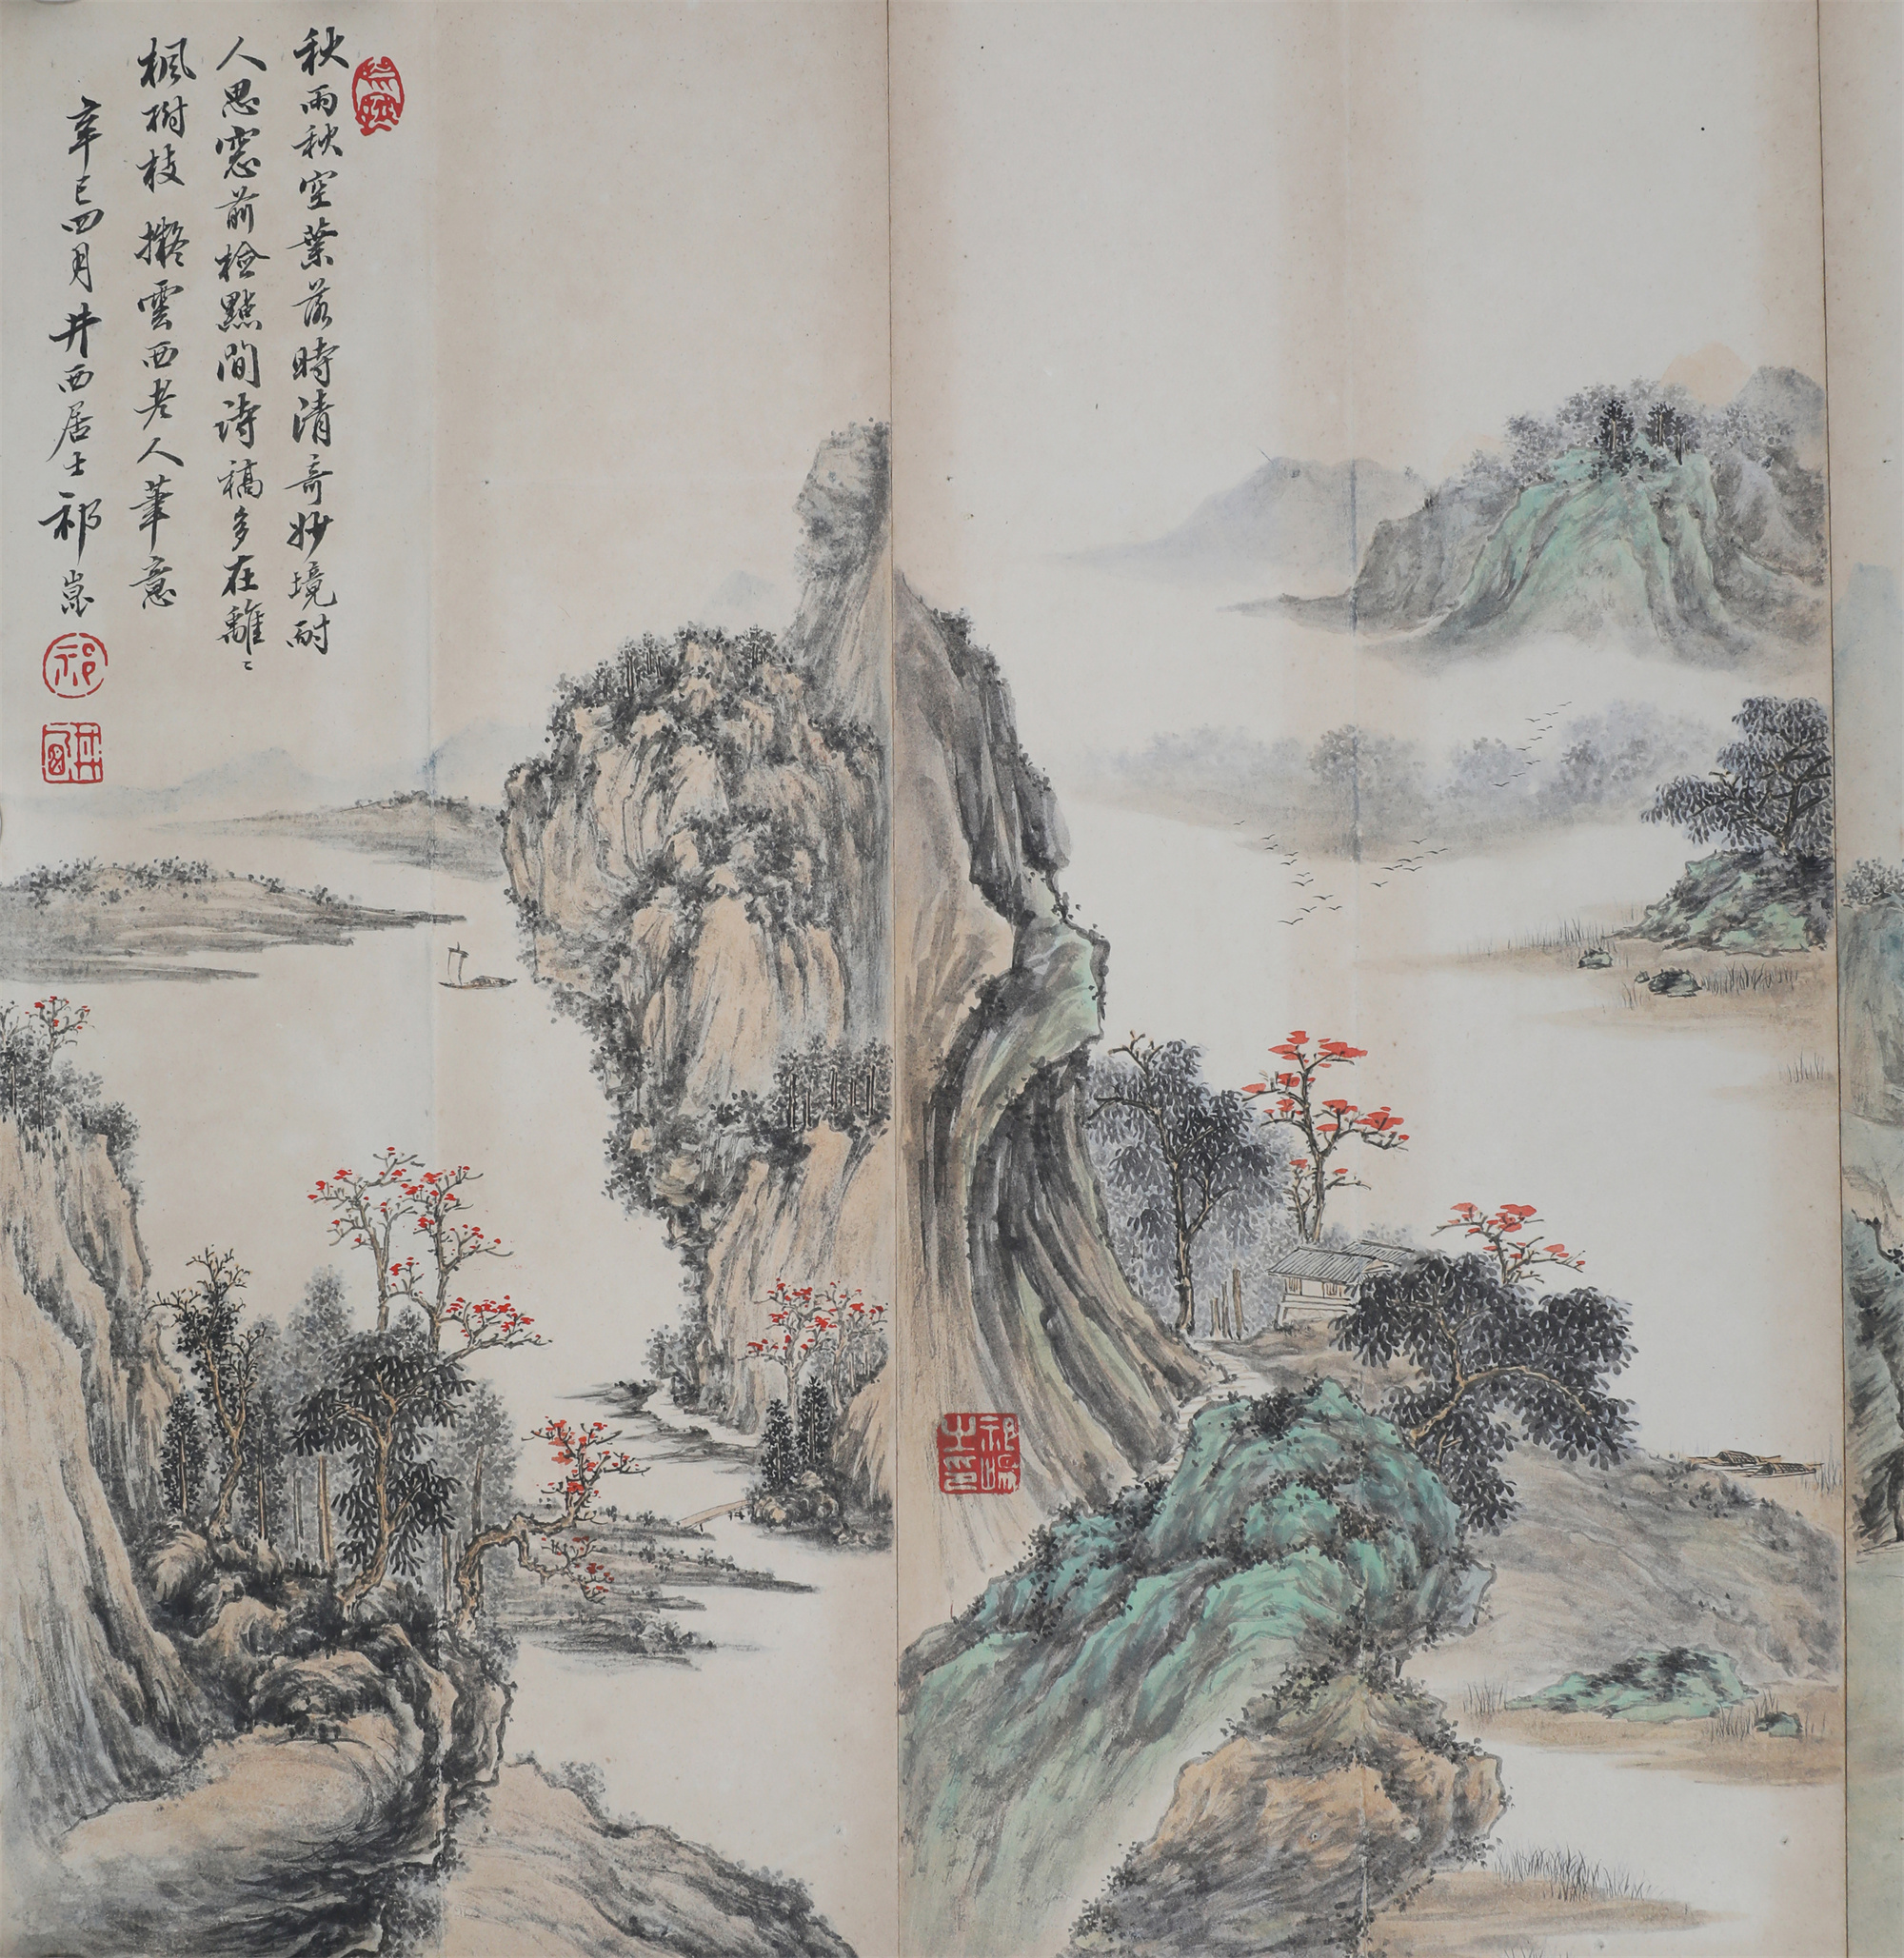 秋雨秋空葉落時清奇妙境耐
人思窓前檢點間詩稿多在離〻
楓樹枝 擬雲西老人筆意
辛巳四月井西居士祁崑
祁
井西
祁崑之印